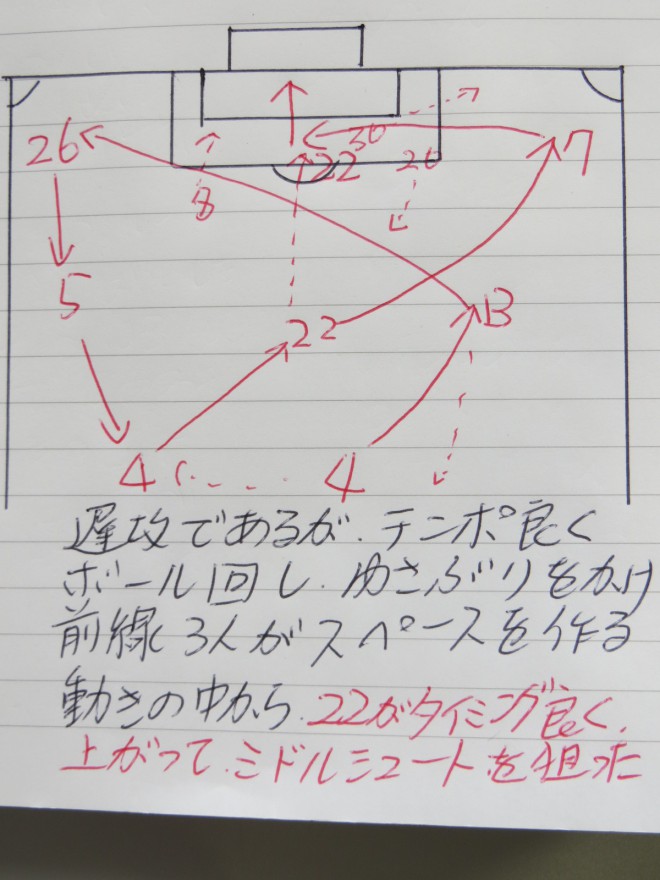 30
26
7
22
20
8
5
22
13
4
4
遅攻であるが、テンポ良く
ボール回し、ゆさぶりをかけ
前線3人がスペースを作る
動きの中から、22がタイミング良く、
上がって、ミドルシュートを狙った